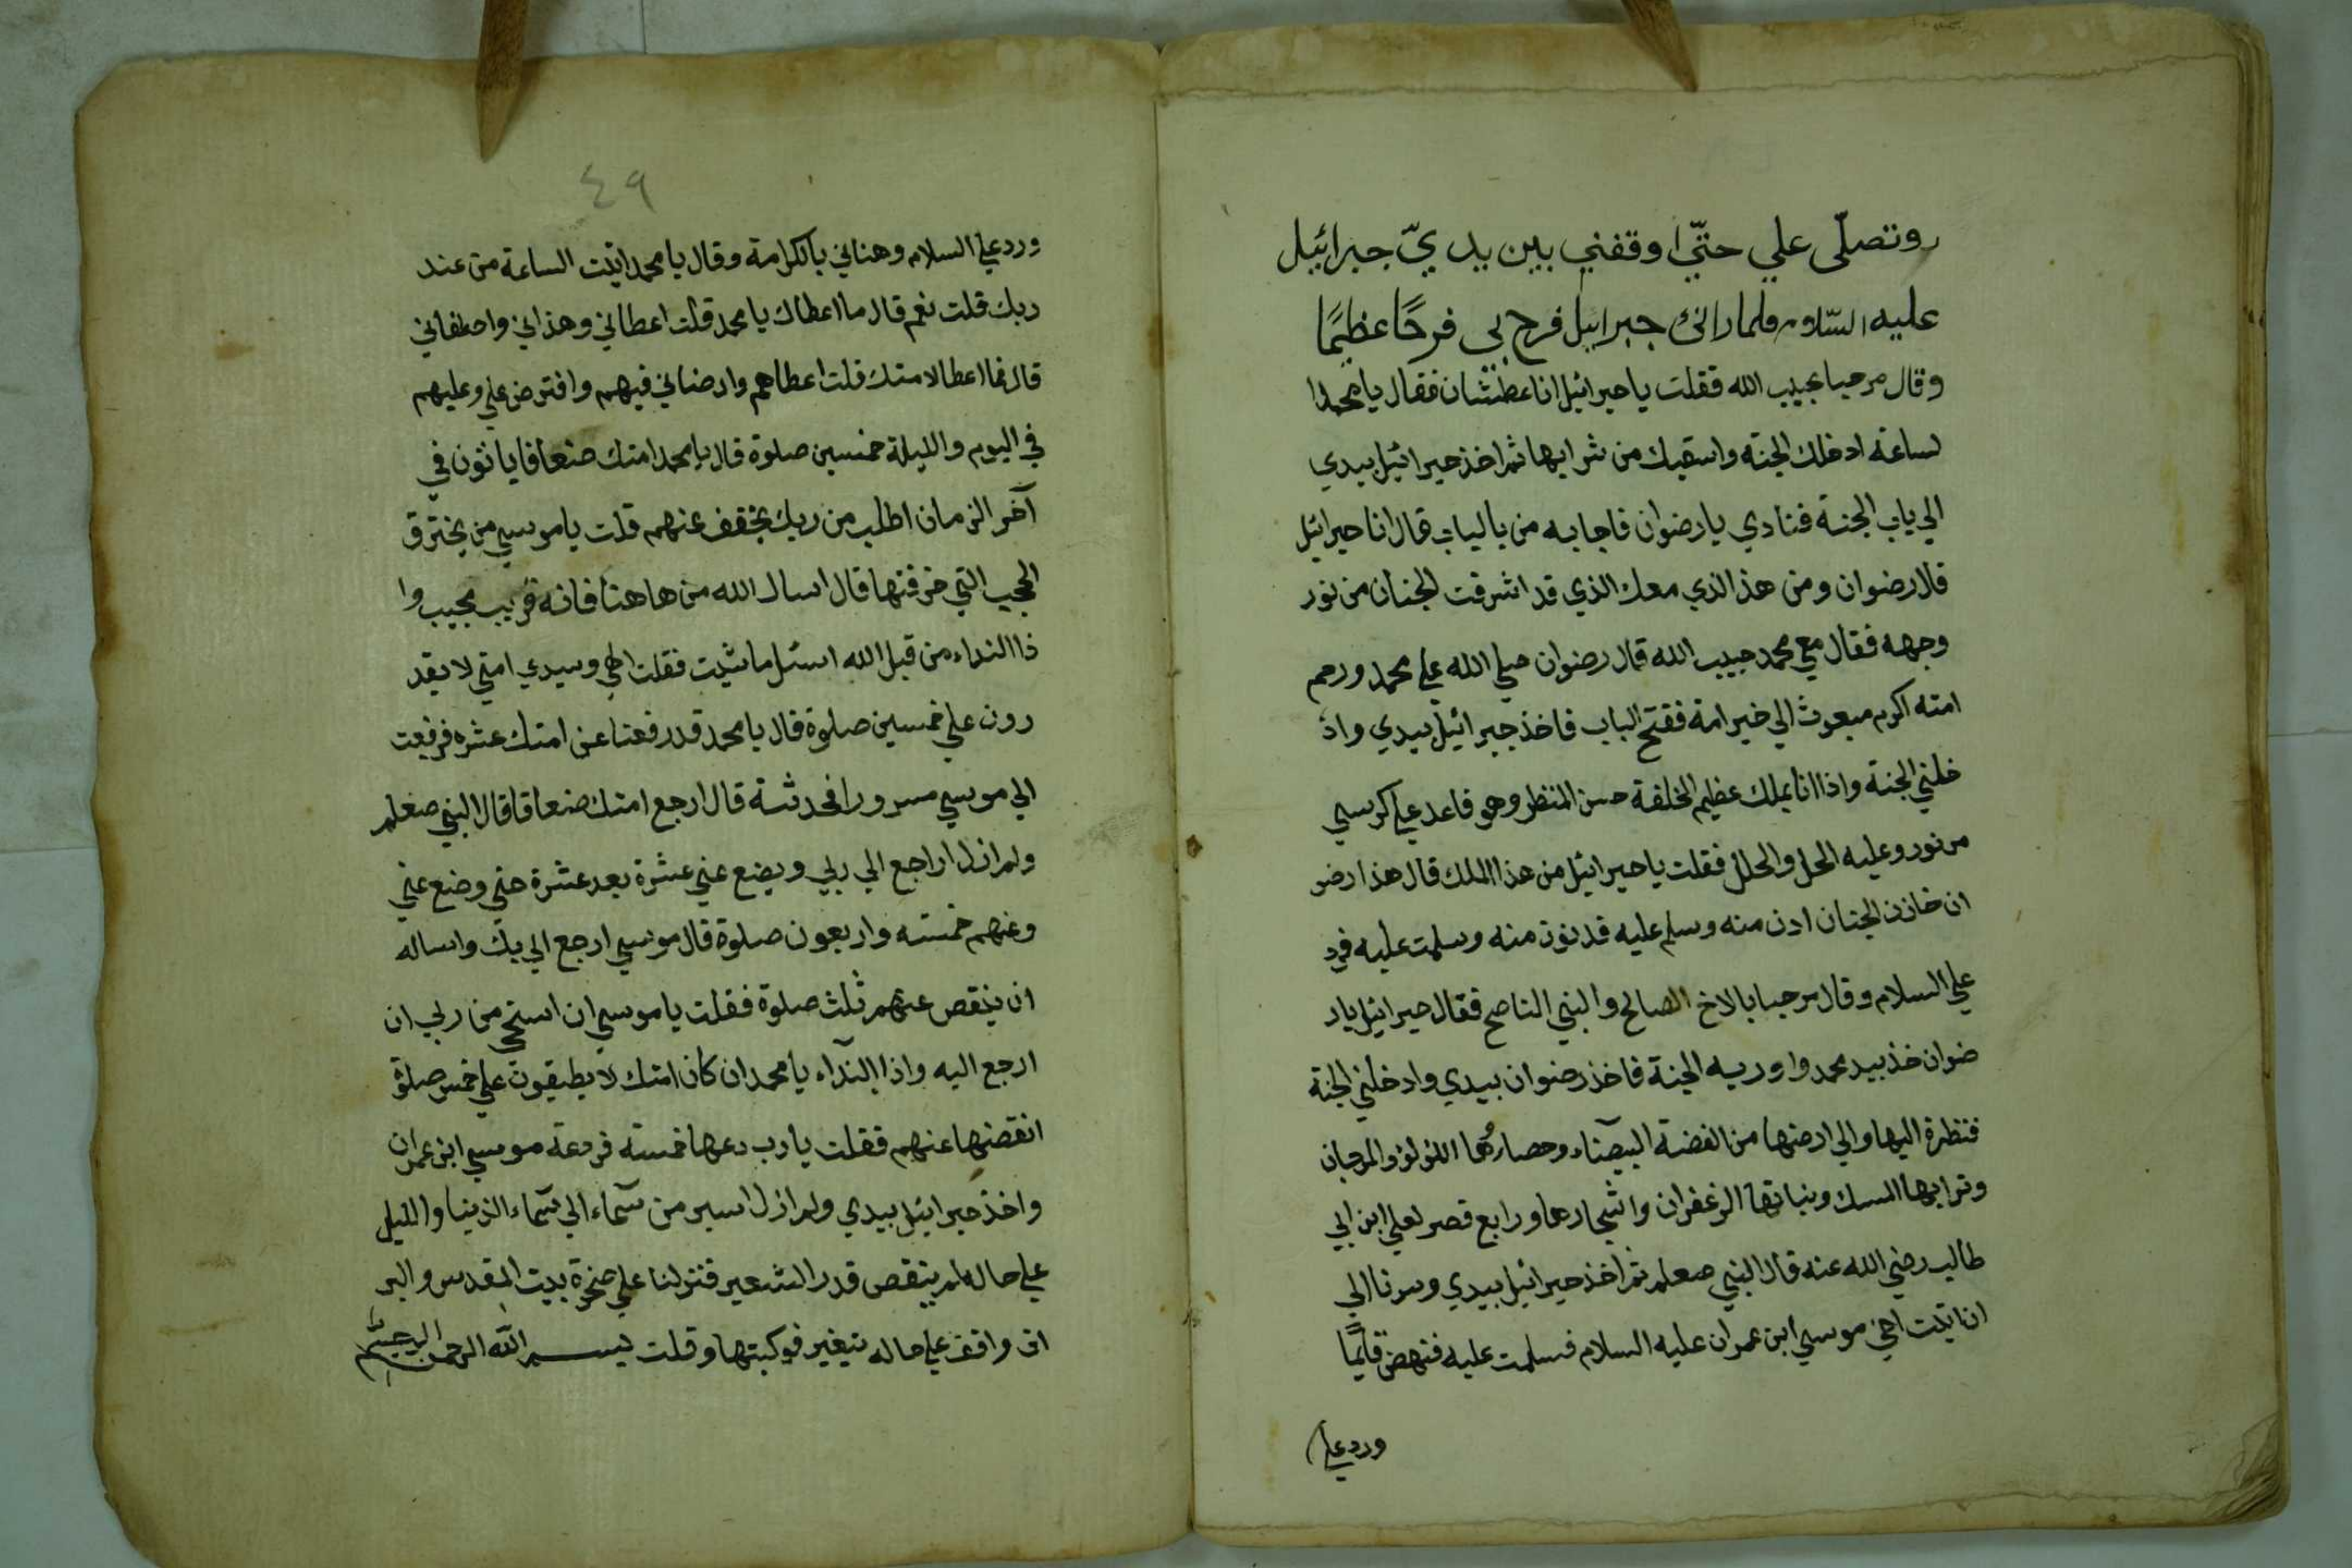 وتصلّى علي حتّي اوقفني بين يديّ جبرائيل
عليه السّلام فلما رانى جبرائيل فرح بي فرحًا عظيمًا
وقال مرحبا بحبيب الله فقلت يا جبرائيل انا عطشان فقال يا محمد ا
لساعة ادخلك الجنة واسقيك من شرابها ثم اخذ جبرائيل بيدي
الي باب الجنة فنادي يا رضوان فاجابه من بالباب قال انا جبرائيل
قال رضوان ومن هذا الذي معك الذي قد اشرقت الجنان من نور
وجهه فقال معي محمد حبيب الله قال رضوان صلي الله علي محمد ورحم
امته اكرم مبعوث الي خير امة ففتح الباب فاخذ جبرائيل بيدي واد
خلني الجنة واذا انا بملك عظيم الخلقة حسن المنظر وهو قاعد علي كرسي
من نور وعليه الحلي والحلل فقلت يا جبرائيل من هذا الملك قال هذا رضو
ان خازن الجنان ادن منه وسلم عليه فدنوت منه وسلمت عليه فرد
علي السلام وقال مرحبا بالاخ الصالح والنبي الناصح فقال جبرائيل يا ر
ضوان خذ بيد محمد واوريه الجنة فاخذ رضوان بيدي وادخلني الجنة
فنظرة اليها والي ارضها من الفضة البيضاء وحصارُها اللؤلؤ والمرجان
وترابها المسك ونباتها الزعفران واشجارها ورابع قصر لعلي ابن ابي
طالب رضي الله عنه قال النبي صعلم ثم اخذ جبرائيل بيدي وسرنا الي
ان اتيت اخي موسي ابن عمران عليه السلام فسلمت عليه فنهض قايمًا
ورد علي
٤٩
ورد علي السلام وهناني بالكرامة وقال يا محمد اتيت الساعة من عند
ربك قلت نعم قال ما اعطاك يا محمد قلت اعطاني وهداني واصطفاني
قال فما اعطا لامتك قلت اعطاهم وارضاني فيهم وافترض علي وعليهم
في اليوم والليلة خمسين صلوة قال يا محمد امتك ضعافا ياتون في
آخر الزمان اطلب من ربك يخفف عنهم قلت يا موسي من يخترق
الحجب التي خرقتها قال اسال الله من هاهنا فانه قريب مجيب وا
ذا النداء من قبل الله اسئل ما شيت فقلت الهي وسيدي امتي لا يقد
رون علي خمسين صلوة قال يا محمد قد رفعنا عن امتك عشره فرفعت
الي موسي مسرورا فحدثته قال ارجع امتك ضعافا قال النبي صعلم
ولم ازل اراجع الي ربي ويضع عني عشرة بعد عشرة حتي وضع عني
وعنهم خمسه واربعون صلوة قال موسي ارجع الي ربك واساله
ان ينقص عنهم ثلث صلوة فقلت يا موسي ان استحي من ربي ان
ارجع اليه واذا النداء يا محمد ان كان امتك لا يطيقون علي خمس صلوة
انقضها عنهم فقلت يا رب دعها خمسة فودعة موسي ابن عمران
واخذ جبرائيل بيدي ولم ازل اسير من سماء الي سماء الدنيا والليل
علي حاله لم ينقص قدر الشعير فنزلنا علي صخرة بيت المقدس والبر
اق واقف علي حاله تيغير فركبتها وقلت بسم الله الرحمن الرحيم